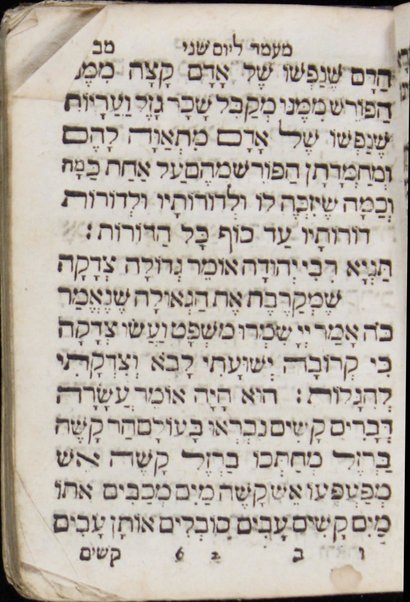 מעמד ליום שני מב
הַדָּם שֶׁנַּפְשׁוֹ שֶׁל אָדָם קָצָה מִמֶּ
הַפּוֹרֵשׁ מִמֶּנּוּ מְקַבֵּל שָׂכָר גָּזֵל וַעֲרָיוֹת
שֶׁנַּפְשׁוֹ שֶׁל אָדָם מִתְאַוָּה לָהֶם
וּמְחַמַּדְתָּן הַפּוֹרֵשׁ מֵהֶם עַל אַחַת כַּמָּה
וְכַמָּה שֶׁיִּזְכֶּה לוֹ וּלְדוֹרוֹתָיו וּלְדוֹרוֹת
דּוֹרוֹתָיו עַד סוֹף כָּל הַדּוֹרוֹת:
תַּנְיָא רִבִּי יְהוּדָה אוֹמֵר גְּדוֹלָה צְדָקָה
שֶׁמְקָרֶבֶת אֶת הַגְּאוּלָה שֶׁנֶּאֱמַר
כֹּה אָמַר יְיָ שִׁמְרוּ מִשְׁפָּט וַעֲשׂוּ צְדָקָה
כִּי קְרוֹבָה יְשׁוּעָתִי לָבֹא וְצִדְקָתִי
לְהִגָּלוֹת: הוּא הָיָה אוֹמֵר עֲשָׂרָה
דְּבָרִים קָשִׁים נִבְרְאוּ בָּעוֹלָם הַר קָשֶׁה
בַּרְזֶל מְחַתְּכוֹ בַּרְזֶל קָשֶׁה אֵשׁ
מְפַעְפְּעוֹ אֵשׁ קָשֶׁה מַיִם מְכַבִּים אֹתוֹ
מַיִם קָשִׁים עָבִים סוֹבְלִים אוֹתָן עָבִים
ו ב 2 6 קשים